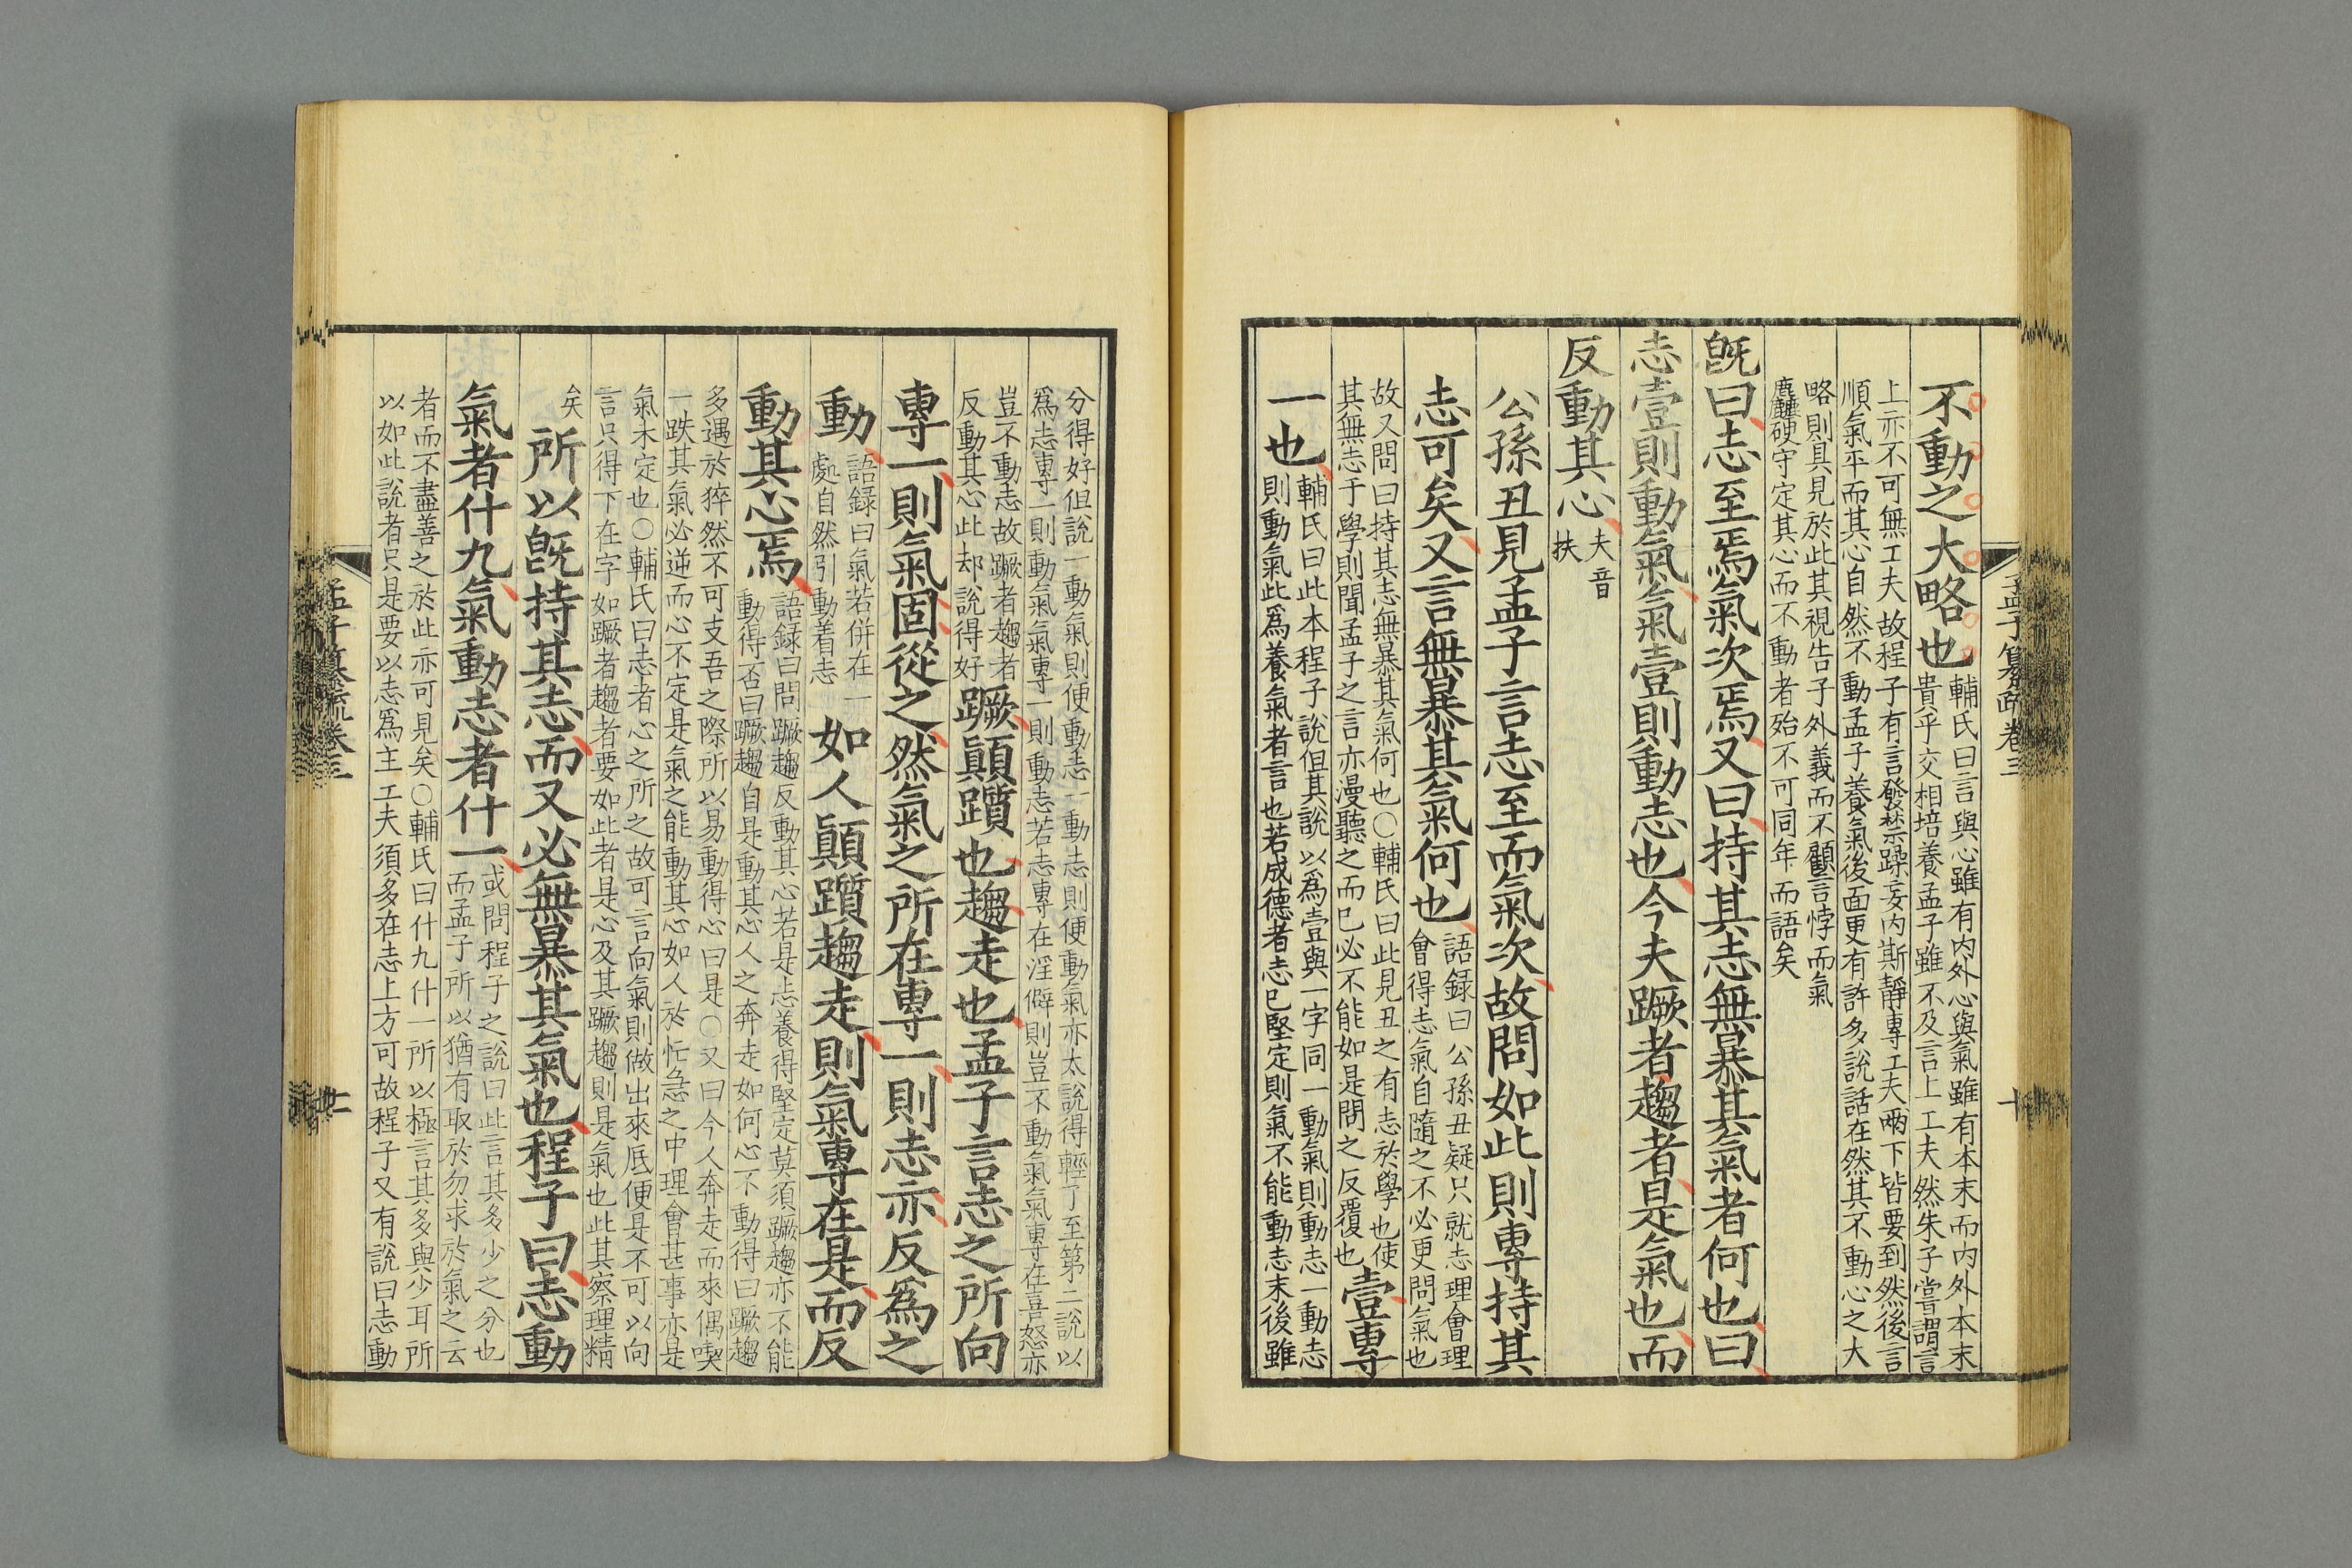 孟子纂疏卷三
不動之大略也
輔氏曰言與心雖有內外心與氣雖有本末而內外本末
貴乎交相培養孟子雖不及言上工夫然朱子嘗謂言
上亦不可無工夫故程子有言發禁躁妄內斯靜專工夫兩下皆要到然後言
順氣平而其心自然不動孟子養氣後面更有許多說話在然其不動心之大
略則具見於此其視告子外義而不顧言悖而氣
麤硬守定其心而不動者殆不可同年而語矣
旣曰志至焉氣次焉又曰持其志無暴其氣者何也曰
志壹則動氣氣壹則動志也今夫蹶者趨者是氣也而
反動其心
夫音
扶
公孫丑見孟子言志至而氣次故問如此則專持其
志可矣又言無暴其氣何也
語録曰公孫丑疑只就志理會理
會得志氣自隨之不必更問氣也
故又問曰持其志無暴其氣何也○輔氏曰此見丑之有志於學也使
其無志于學則聞孟子之言亦漫聽之而已必不能如是問之反覆也
壹專
一也
輔氏曰此本程子說但其說以為壹與一字同一動氣則動志一動志
則動氣此爲養氣者言也若成德者志已堅定則氣不能動志末後雖
分得好但說一動氣則便動志一動志則便動氣亦太說得輕了至第二說以
爲志專一則動氣氣專一則動志若志專在淫僻則豈不動氣氣專在喜怒亦
豈不動志故蹶者趨者
反動其心此却說得好
蹶顚躓也趨走也孟子言志之所向
專一則氣固從之然氣之所在專一則志亦反爲之
動
語録曰氣若併在一
處自然引動着志
如人顚躓趨走則氣專在是而反
動其心焉
語録曰問蹶趨反動其心若是志養得堅定莫須蹶趨亦不能
動得否曰蹶趨自是動其心人之奔走如何心不動得曰蹶趨
多遇於猝然不可支吾之際所以易動得心曰是○又曰今人奔走而來偶喫
一跌其氣必逆而心不定是氣之能動其心如人於忙急之中理會甚事亦是
氣未定也○輔氏曰志者心之所之故可言向氣則做出來底便是不可以向
言只得下在字如蹶者趨者要如此者是心及其蹶趨則是氣也此其察理精
矣
所以旣持其志而又必無暴其氣也程子曰志動
氣者什九氣動志者什一
或問程子之說曰此言其多少之分也
而孟子所以猶有取於勿求於氣之云
者而不盡善之於此亦可見矣○輔氏曰什九什一所以極言其多與少耳所
以如此說者只是要以志爲主工夫須多在志上方可故程子又有說曰志動
孟子纂疏卷三